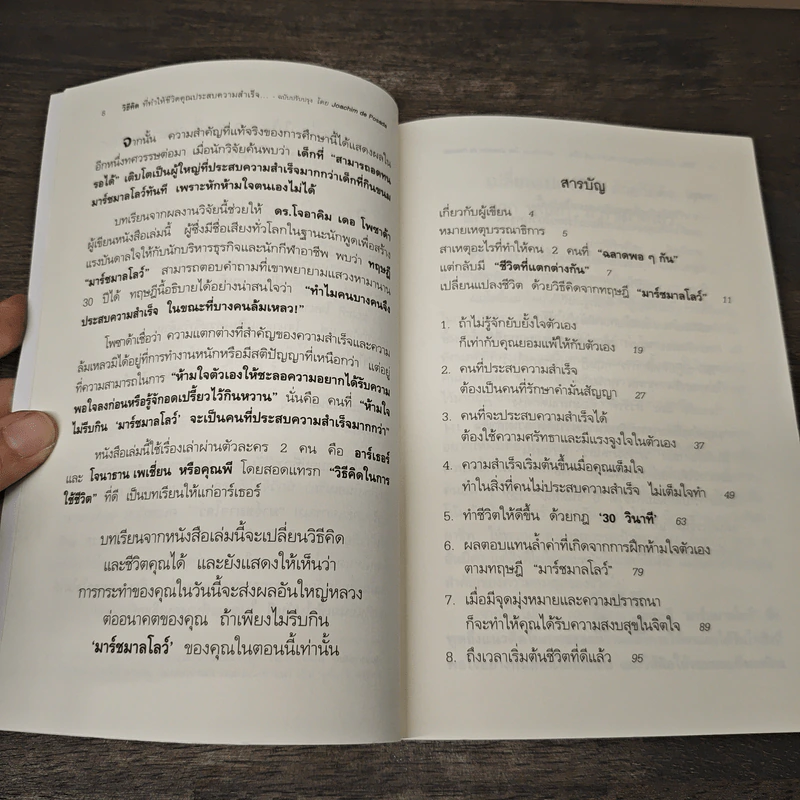 8 วิธีคิด ที่ทำให้ชีวิตคุณประสบความสำเร็จ... - ฉบับปรับปรุง โดย Joachim de Posada
จากนั้น ความสำคัญที่แท้จริงของการศึกษานี้ได้แสดงผลใน
อีกหนึ่งทศวรรษต่อมา เมื่อนักวิจัยค้นพบว่า เด็กที่ "สามารถอดทน
รอได้" เติบโตเป็นผู้ใหญ่ที่ประสบความสำเร็จมากกว่าเด็กที่กินขนม
มาร์ชมาลโลว์ทันที เพราะหักห้ามใจตนเองไม่ได้
บทเรียนจากผลงานวิจัยนี้ช่วยให้ ดร.โจอาคิม เดอ โพซาด้า
ผู้เขียนหนังสือเล่มนี้ ผู้ซึ่งมีชื่อเสียงทั่วโลกในฐานะนักพูดเพื่อสร้าง
แรงบันดาลใจให้กับนักบริหารธุรกิจและนักกีฬาอาชีพ พบว่า ทฤษฎี
"มาร์ชมาลโลว์" สามารถตอบคำถามที่เขาพยายามแสวงหามานาน
30 ปีได้ ทฤษฎีนี้อธิบายได้อย่างน่าสนใจว่า "ทำไมคนบางคนจึง
ประสบความสำเร็จ ในขณะที่บางคนล้มเหลว!"
โพซาด้าเชื่อว่า ความแตกต่างที่สำคัญของความสำเร็จและความ
ล้มเหลวมิได้อยู่ที่การทำงานหนักหรือมีสติปัญญาที่เหนือกว่า แต่อยู่
ที่ความสามารถในการ "ห้ามใจตัวเองให้ชะลอความอยากได้รับความ
พอใจลงก่อนหรือรู้จักอดเปรี้ยวไว้กินหวาน" นั่นคือ คนที่ "ห้ามใจ
ไม่รีบกิน 'มาร์ชมาลโลว์' จะเป็นคนที่ประสบความสำเร็จมากกว่า"
หนังสือเล่มนี้ใช้เรื่องเล่าผ่านตัวละคร 2 คน คือ อาร์เธอร์
และ โจนาธาน เพเชี่ยน หรือคุณพี โดยสอดแทรก "วิธีคิดในการ
ใช้ชีวิต" ที่ดี เป็นบทเรียนให้แก่อาร์เธอร์
บทเรียนจากหนังสือเล่มนี้จะเปลี่ยนวิธีคิด
และชีวิตคุณได้ และยังแสดงให้เห็นว่า
การกระทำของคุณในวันนี้จะส่งผลอันใหญ่หลวง
ต่ออนาคตของคุณ ถ้าเพียงไม่รีบกิน
'มาร์ชมาลโลว์' ของคุณในตอนนี้เท่านั้น
สารบัญ
เกี่ยวกับผู้เขียน 4
หมายเหตุบรรณาธิการ 5
สาเหตุอะไรที่ทำให้คน 2 คนที่ "ฉลาดพอ ๆ กัน"
แต่กลับมี "ชีวิตที่แตกต่างกัน" 7
เปลี่ยนแปลงชีวิต ด้วยวิธีคิดจากทฤษฎี "มาร์ชมาลโลว์" 11
1. ถ้าไม่รู้จักยับยั้งใจตัวเอง
ก็เท่ากับคุณยอมแพ้ให้กับตัวเอง 19
2. คนที่ประสบความสำเร็จ
ต้องเป็นคนที่รักษาคำมั่นสัญญา 27
3. คนที่จะประสบความสำเร็จได้
ต้องใช้ความศรัทธาและมีแรงจูงใจในตัวเอง 37
4. ความสำเร็จเริ่มต้นขึ้นเมื่อคุณเต็มใจ
ทำในสิ่งที่คนไม่ประสบความสำเร็จ ไม่เต็มใจทำ 49
5. ทำชีวิตให้ดีขึ้น ด้วยกฎ '30 วินาที' 63
6. ผลตอบแทนล้ำค่าที่เกิดจากการฝึกห้ามใจตัวเอง
ตามทฤษฎี "มาร์ชมาลโลว์" 79
7. เมื่อมีจุดมุ่งหมายและความปรารถนา
ก็จะทำให้คุณได้รับความสงบสุขในจิตใจ 89
8. ถึงเวลาเริ่มต้นชีวิตที่ดีแล้ว 95